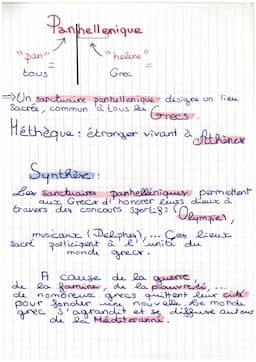 Panhellenique
"pan" = "helene" =
tous Grec
⇒ Un sanctuaire panhellenique designe un lieu
Sacré, commun à tous les Grecs.
Méthèque : étranger vivant à Athènes
Synthèse :
Les sanctuaires panhelléniques permettent
aux Grecs d'honorer leurs dieux à
travers des concours sportifs (Olympie),
musicaux (Delphes), ... Ces lieux
sacré participent à l'unité du
monde grecs.
A cause de la guerre,
de la famine, de la pauvreté, ...
de nombreux grecs quittent leur cité
pour fonder une nouvelle. Le monde
grec s'agrandit et se diffuse autour
de la Méditerranné.